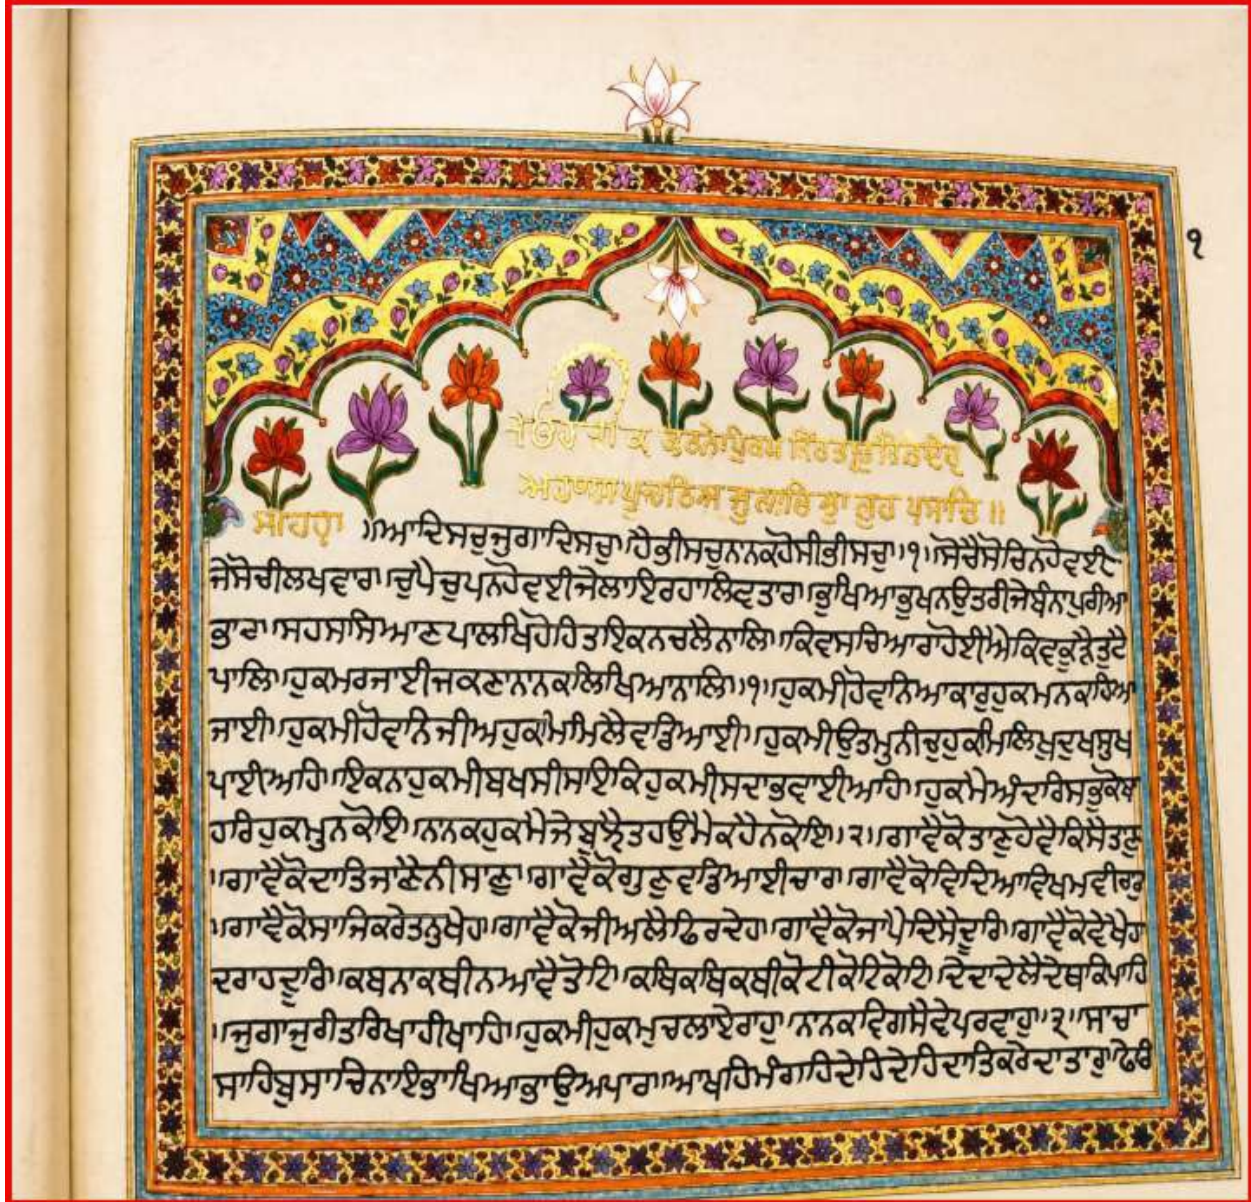 ੧
॥ਆਦਿਸਚੁਜੁਗਾਦਿਸਚੁ॥ਹੈਭੀਸਚੁਨਾਨਕਹੋਸੀਭੀਸਚੁ॥੧॥ਸੋਚੈਸੋਚਿਨਹੋਵਈ
ਜੇਸੋਚੀਲਖਵਾਰ॥ਚੁਪੈਚੁਪਨਹੋਵਈਜੇਲਾਇਰਹਾਲਿਵਤਾਰ॥ਭੁਖਿਆਭੁਖਨਉਤਰੀਜੇਬੰਨਾਪੁਰੀਆ
ਭਾਰ॥ਸਹਸਸਿਆਣਪਾਲਖਹੋਹਿਤਇਕਨਚਲੈਨਾਲਿ॥ਕਿਵਸਚਿਆਰਾਹੋਈਐਕਿਵਕੂੜੈਤੁਟੈ
ਪਾਲਿ॥ਹੁਕਮਰਜਾਈਚਲਣਾਨਾਨਕਲਿਖਿਆਨਾਲਿ॥੧॥ਹੁਕਮੀਹੋਵਨਿਆਕਾਰੁਹੁਕਮਨਕਹਿਆ
ਜਾਈ॥ਹੁਕਮੀਹੋਵਨਿਜੀਅਹੁਕਮਿਮਿਲੈਵਡਿਆਈ॥ਹੁਕਮੀਉਤਮੁਨੀਚੁਹੁਕਮਿਲਿਖਿਦੁਖਸੁਖ
ਪਾਈਅਹਿ॥ਇਕਨਾਹੁਕਮੀਬਖਸੀਸਇਕਿਹੁਕਮੀਸਦਾਭਵਾਈਅਹਿ॥ਹੁਕਮੈਅੰਦਰਿਸਭੁਕੋਬਾ
ਹਰਿਹੁਕਮੁਨਕੋਇ॥ਨਾਨਕਹੁਕਮੈਜੇਬੁਝੈਤਹਉਮੈਕਹੈਨਕੋਇ॥੨॥ਗਾਵੈਕੋਤਾਣੁਹੋਵੈਕਿਸੈਤਾਣੁ
॥ਗਾਵੈਕੋਦਾਤਿਜਾਣੈਨੀਸਾਣੁ॥ਗਾਵੈਕੋਗੁਣਵਡਿਆਈਚਾਰ॥ਗਾਵੈਕੋਵਿਦਿਆਵਿਖਮੁਵੀਚਾਰੁ
॥ਗਾਵੈਕੋਸਾਜਿਕਰੇਤਨੁਖੇਹ॥ਗਾਵੈਕੋਜੀਅਲੈਫਿਰਿਦੇਹ॥ਗਾਵੈਕੋਜਾਪੈਦਿਸੈਦੂਰਿ॥ਗਾਵੈਕੋਵੇਖੈਹਾ
ਦਰਾਹਦੂਰਿ॥ਕਥਨਾਕਥੀਨਆਵੈਤੋਟਿ॥ਕਥਿਕਥਿਕਥੀਕੋਟੀਕੋਟਿਕੋਟਿ॥ਦੇਦਾਦੇਲੈਦੇਥਕਿਪਾਹਿ
॥ਜੁਗਾਜੁਗੰਤਰਿਖਾਹੀਖਾਹਿ॥ਹੁਕਮੀਹੁਕਮੁਚਲਾਏਰਾਹੁ॥ਨਾਨਕਵਿਗਸੈਵੇਪਰਵਾਹੁ॥੩॥ਸਾਚਾ
ਸਾਹਿਬੁਸਾਚੁਨਾਇਭਾਖਿਆਭਾਉਅਪਾਰੁ॥ਆਖਹਿਮੰਗਹਿਦੇਹਿਦੇਹਿਦਾਤਿਕਰੇਦਾਤਾਰੁ॥ਫੇਰਿ